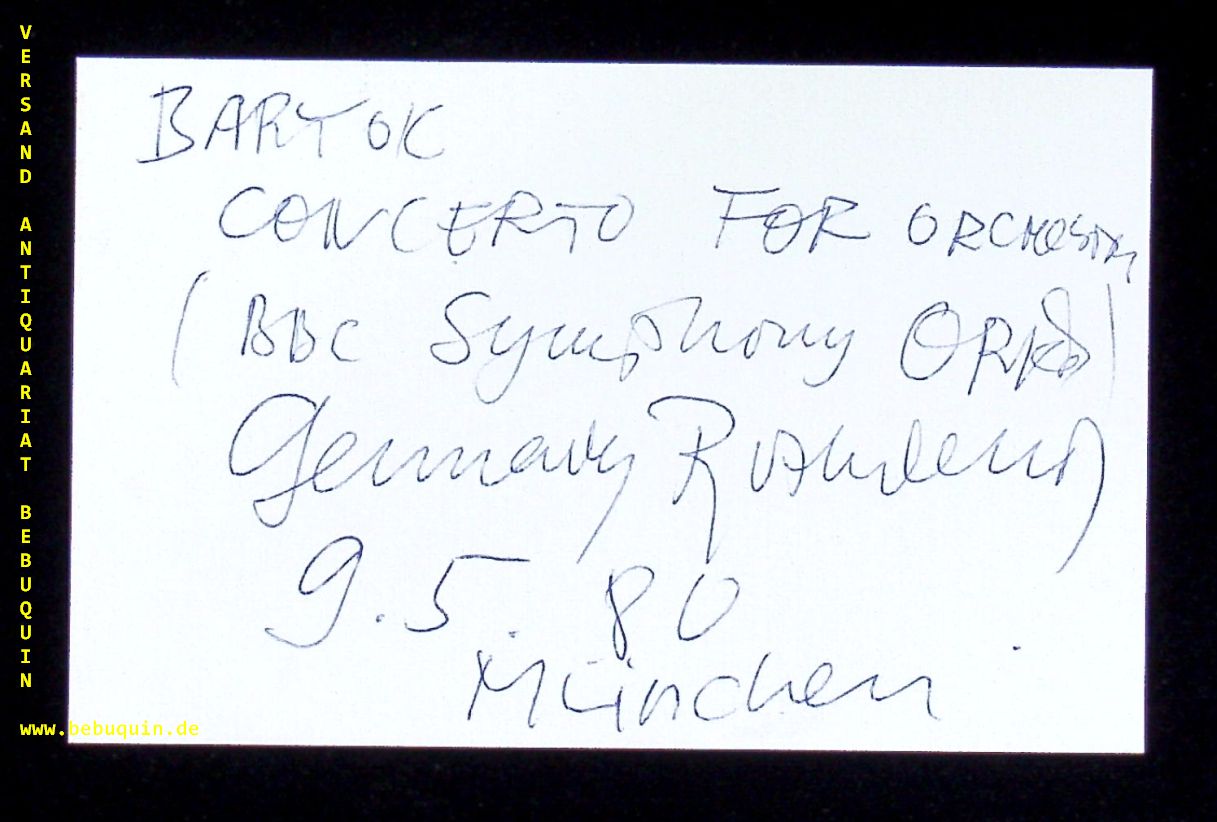 VERSAND ANTIQUARIAT BEBUQUIN
BARTOK
CONCERTO FOR ORCHESTRA
(BBC Symphony
Gennady Rozhdest
9.5.80
München
www.bebuquin.de